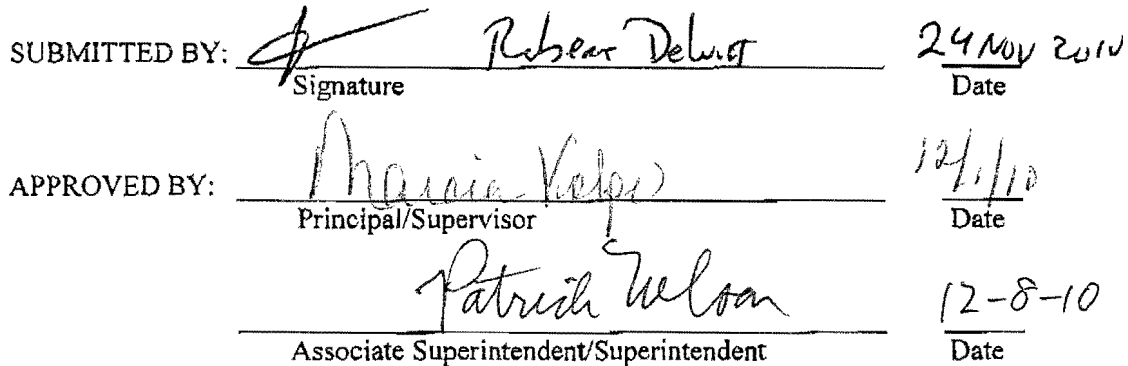 SUBMITTED BY: Robert Dewitt 24 NOV 2010
Signature Date
APPROVED BY: Marcia 12/1/10
Principal/Supervisor Date
Patrick 12-8-10
Associate Superintendent/Superintendent Date